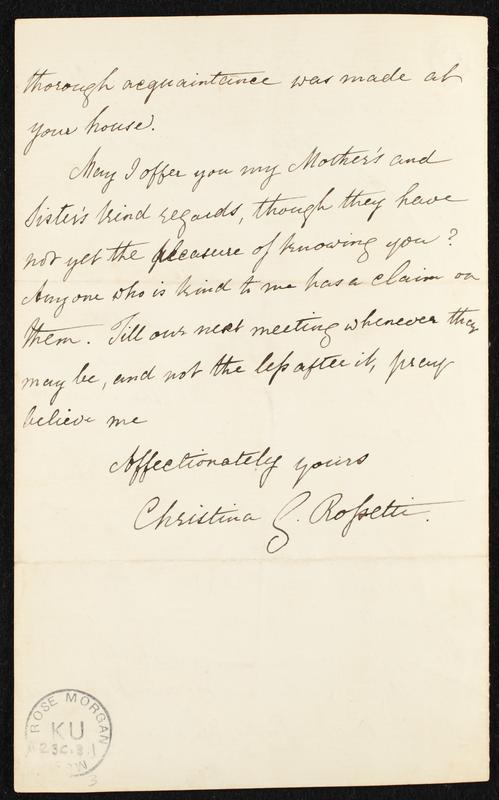 thorough acquaintance was made at
your house.
May I offer you my Mother's and
Sister's kind regards, though they have
not yet the pleasure of knowing you?
Anyone who is kind to me has a claim on
them. Till our next meeting whenever that
may be, and not the less after it, pray
believe me
Affectionately yours
Christina G. Rossetti.
ROSE MORGAN
KU
3